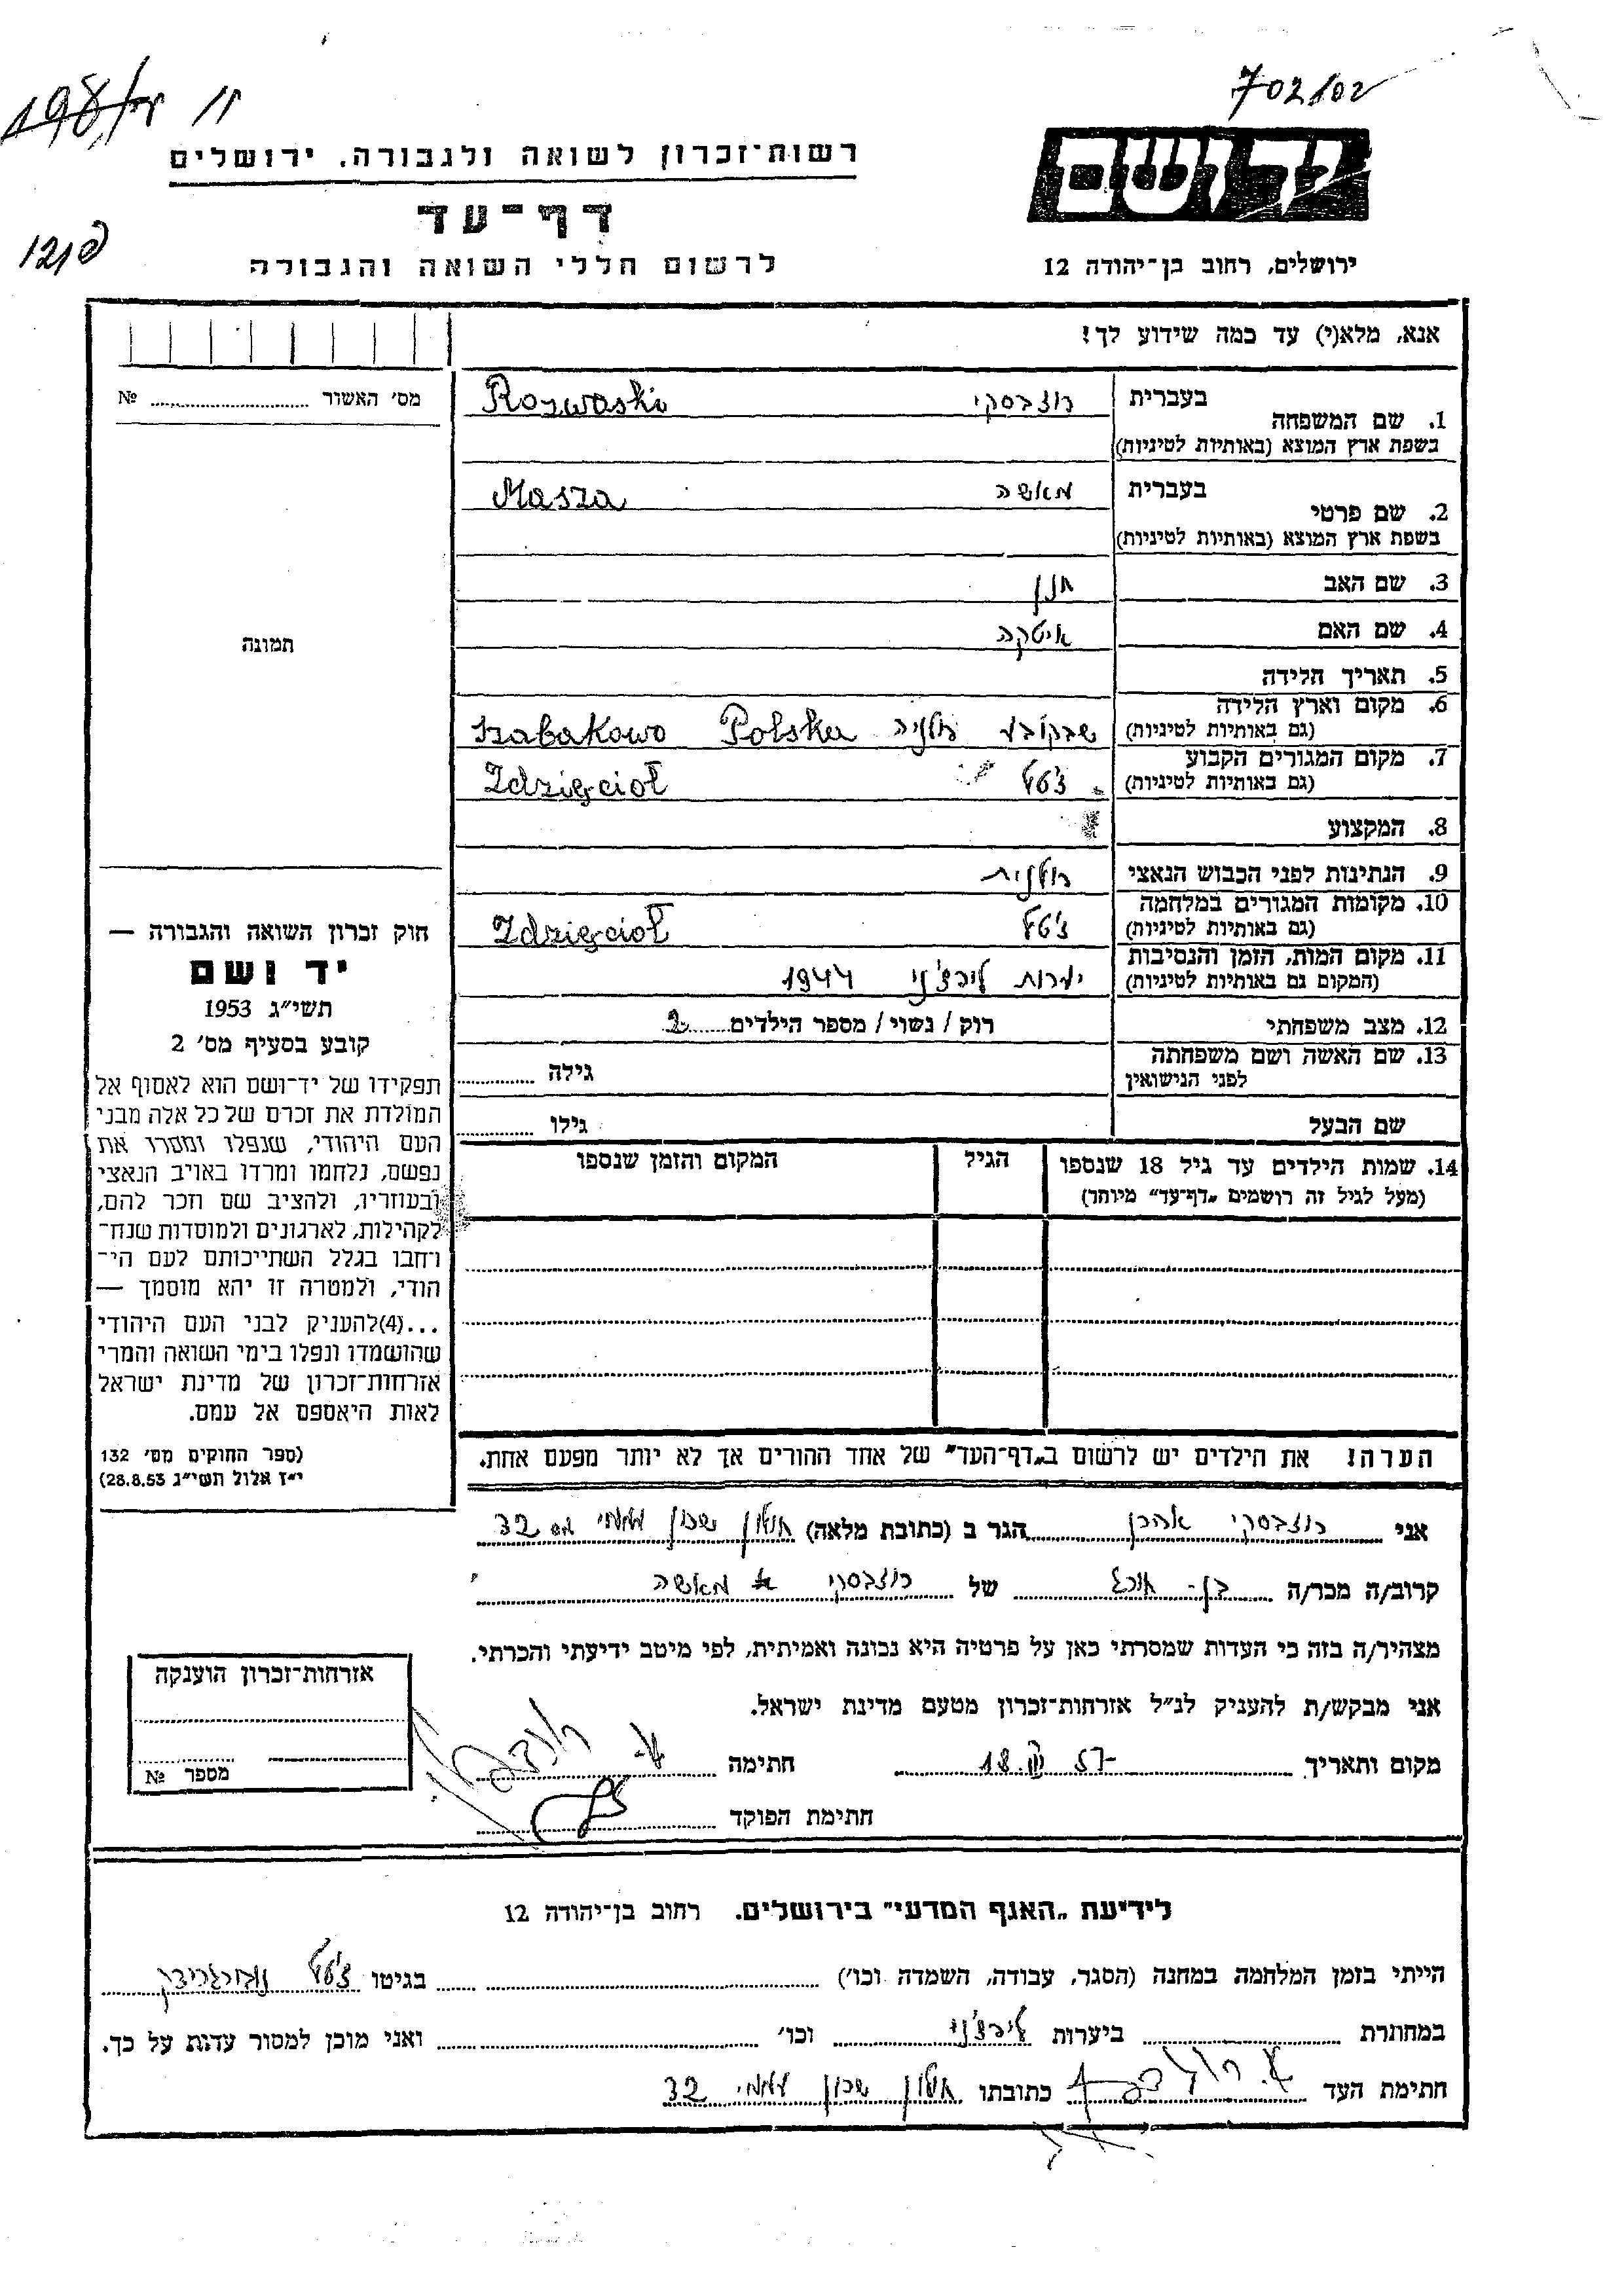 702/02
רשות־זכרון לשואה ולגבורה, ירושלים
יד ושם
דף־עד
לרשום חללי השואה והגבורה
ירושלים, רחוב בן־יהודה 12
אנא, מלא(י) עד כמה שידוע לך!
מס׳ האשור №
1. שם המשפחה
בעברית רוצבסקי Rozwaski
בשפת ארץ המוצא (באותיות לטיניות)
2. שם פרטי
בעברית מאשה Masza
בשפת ארץ המוצא (באותיות לטיניות)
3. שם האב חנן
4. שם האם איטקה
תמונה
5. תאריך הלידה
6. מקום וארץ הלידה
(גם באותיות לטיניות) פולניה Polska Szabakowo
7. מקום המגורים הקבוע
(גם באותיות לטיניות) ז'טל Zdzięcioł
8. המקצוע
9. הנתינות לפני הכבוש הנאצי פולנית
10. מקומות המגורים במלחמה
(גם באותיות לטיניות) ז'טל Zdzięcioł
11. מקום המות, הזמן והנסיבות
(המקום גם באותיות לטיניות) יערות ליפצ'ני 1944
12. מצב משפחתי רוק / נשוי / מספר הילדים 2
13. שם האשה ושם משפחתה
לפני הנישואין גילה
שם הבעל גילו
14. שמות הילדים עד גיל 18 שנספו הגיל המקום והזמן שנספו
(מעל לגיל זה רושמים „דף־עד” מיוחד)
הערה! את הילדים יש לרשום ב„דף־העד” של אחד ההורים אך לא יותר מפעם אחת.
חוק זכרון השואה והגבורה —
יד ושם
תשי״ג 1953
קובע בסעיף מס׳ 2
תפקידו של יד־ושם הוא לאסוף אל
המולדת את זכרם של כל אלה מבני
העם היהודי, שנפלו ומסרו את
נפשם, נלחמו ומרדו באויב הנאצי
ובעוזריו, ולהציב שם וזכר להם,
לקהילות, לארגונים ולמוסדות שנח־
רחבו בגלל השתייכותם לעם הי־
הודי, ולמטרה זו יהא מוסמך —
...(4)להעניק לבני העם היהודי
שהושמדו ונפלו בימי השואה והמרי
אזרחות־זכרון של מדינת ישראל
לאות היאספם אל עמם.
(ספר החוקים מס׳ 132
י״ז אלול תשי״ג 28.8.53)
אני רוצבסקי אהרן הגר ב (כתובת מלאה) חולון שכון עממי 32
קרוב/ה מכר/ה בן- של רוצבסקי מאשה
מצהיר/ה בזה כי העדות שמסרתי כאן על פרטיה היא נכונה ואמיתית, לפי מיטב ידיעתי והכרתי.
אני מבקש/ת להעניק לנ״ל אזרחות־זכרון מטעם מדינת ישראל.
מקום ותאריך 18.III 57- חתימה
חתימת הפוקד
אזרחות־זכרון הוענקה
מספר №
לידיעת „האגף המדעי” בירושלים. רחוב בן־יהודה 12
הייתי בזמן המלחמה במחנה (הסגר, עבודה, השמדה וכו׳) בגיטו ז'טל נובוגרודק
במחתרת ביערות ליפצ'ני וכו׳ ואני מוכן למסור עדות על כך.
חתימת העד כתובתו חולון שכון עממי 32